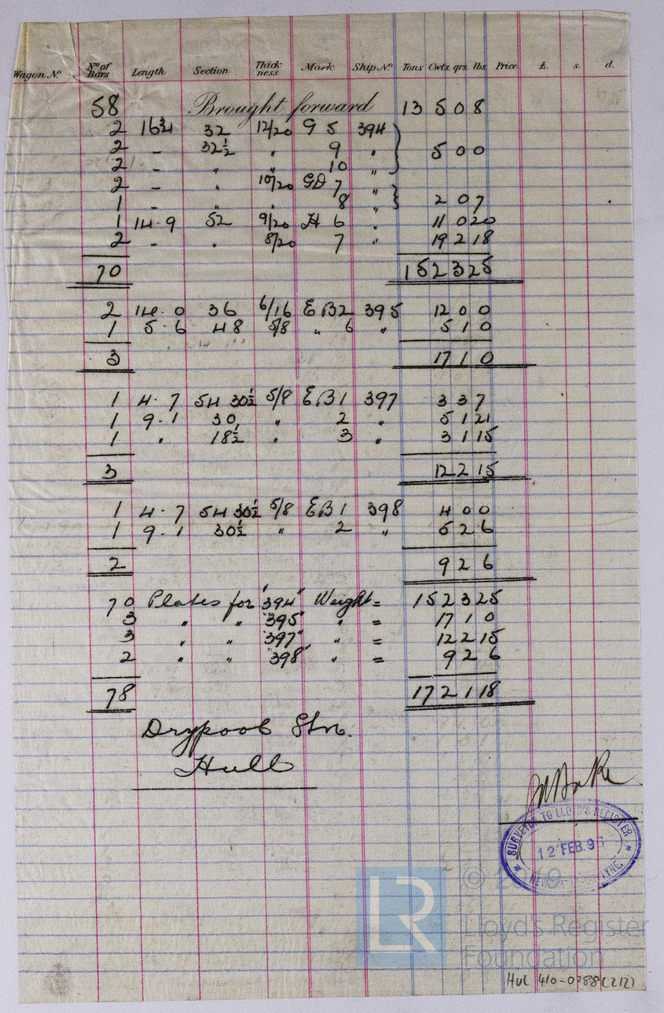 Wagon Nº Nº of Bars Length Section Thickness Mark Ship Nº Tons Cwts. qrs. lbs. Price £. s. d.
58 Brought forward 13 5 0 8
2 16 3/4 32 12/20 G 5 394
2 - 32½ " 9 " 5 0 0
2 - " " 10 "
2 - " 10/20 GD 7 "
1 - " " 8 " 2 0 7
1 14.9 52 9/20 H 6 " 11 0 20
2 - " 8/20 7 " 19 2 18
70 15 2 3 25
2 14.0 36 6/16 EB2 395 12 0 0
1 5.6 48 5/8 " 6 " 5 1 0
3 17 1 0
1 4.7 54 30½ 5/8 EB1 397 3 3 7
1 9.1 30 " 2 " 5 1 21
1 " 18½ " 3 " 3 1 15
3 12 2 15
1 4.7 54 30½ 5/8 EB1 398 4 0 0
1 9.1 30½ " 2 " 5 2 6
2 9 2 6
70 Plates for "394" Weight = 15 2 3 25
3 " " "395" " = 17 1 0
3 " " "397" " = 12 2 15
2 " " "398" " = 9 2 6
78 17 2 1 18
Drypool Stn.
Hull
SURVEYOR TO LLOYD'S REGISTER
12 FEB. 95
LR
Lloyd's Register
Foundation
HUL 410-0388 (2/2)